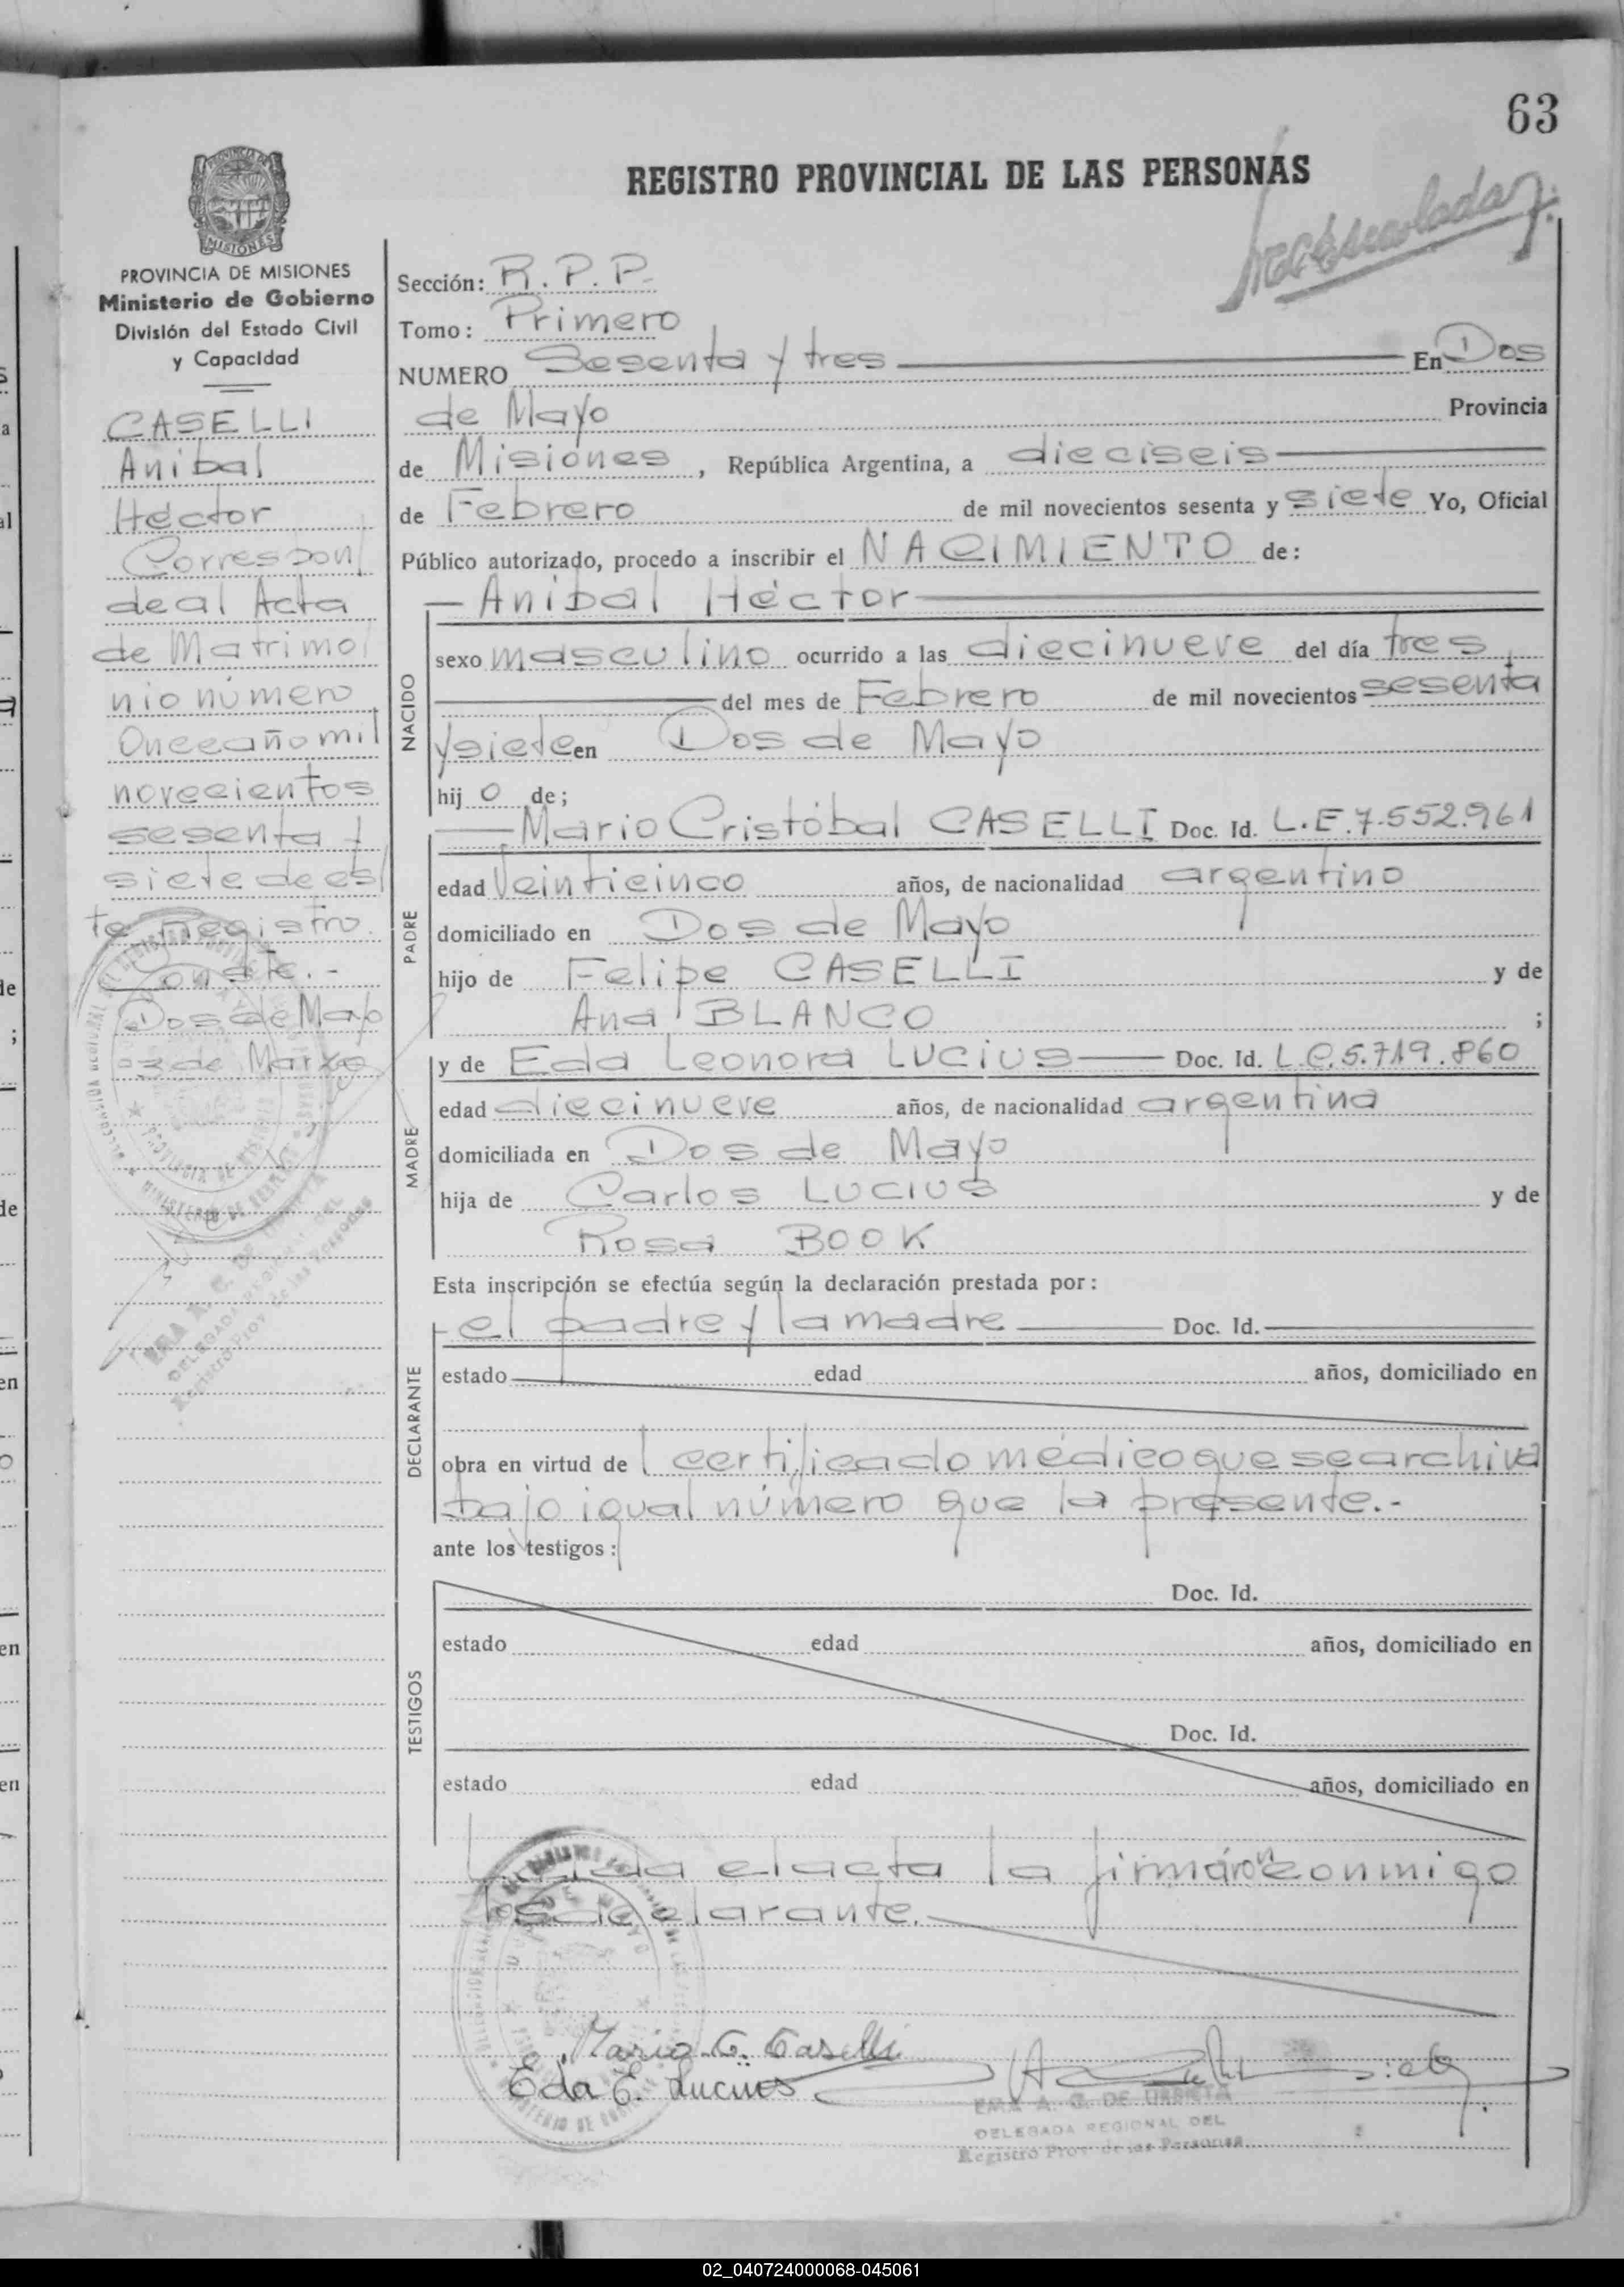 63
REGISTRO PROVINCIAL DE LAS PERSONAS
MISIONES
PROVINCIA DE MISIONES
Ministerio de Gobierno
División del Estado Civil
y Capacidad
CASELLI
Anibal
Héctor
Correspon
de al Acta
de Matrimo
nio número
Once año mil
novecientos
sesenta y
siete de es
te Registro.
Conste.-
Dos de Mayo
03 de Marzo
Sección: R.P.P.
Tomo: Primero
NUMERO Sesenta y tres En Dos
de Mayo Provincia
de Misiones, República Argentina, a dieciseis
de Febrero de mil novecientos sesenta y siete Yo, Oficial
Público autorizado, procedo a inscribir el NACIMIENTO de:
Anibal Héctor
NACIDO
sexo masculino ocurrido a las diecinueve del día tres
del mes de Febrero de mil novecientos sesenta
y siete en Dos de Mayo
hij o de;
PADRE
Mario Cristóbal CASELLI Doc. Id. L.E.7.552.961
edad Veinticinco años, de nacionalidad argentino
domiciliado en Dos de Mayo
hijo de Felipe CASELLI y de
Ana BLANCO ;
MADRE
y de Eda Leonora LUCIUS Doc. Id. L.C.5.719.860
edad diecinueve años, de nacionalidad argentina
domiciliada en Dos de Mayo
hija de Carlos LUCIUS y de
Rosa BOOK
Esta inscripción se efectúa según la declaración prestada por:
DECLARANTE
el padre y la madre Doc. Id.
estado edad años, domiciliado en
obra en virtud de l certificado médico que se archiva
bajo igual número que la presente.-
ante los testigos:
TESTIGOS
Doc. Id.
estado edad años, domiciliado en
Doc. Id.
estado edad años, domiciliado en
el acta la firmáron conmigo
los declarante.
Mario C. Caselli
Eda E. Lucius
EMA A. C. DE URBIETA
DELEGADA REGIONAL DEL
Registro Prov. de las Personas
02_040724000068-045061